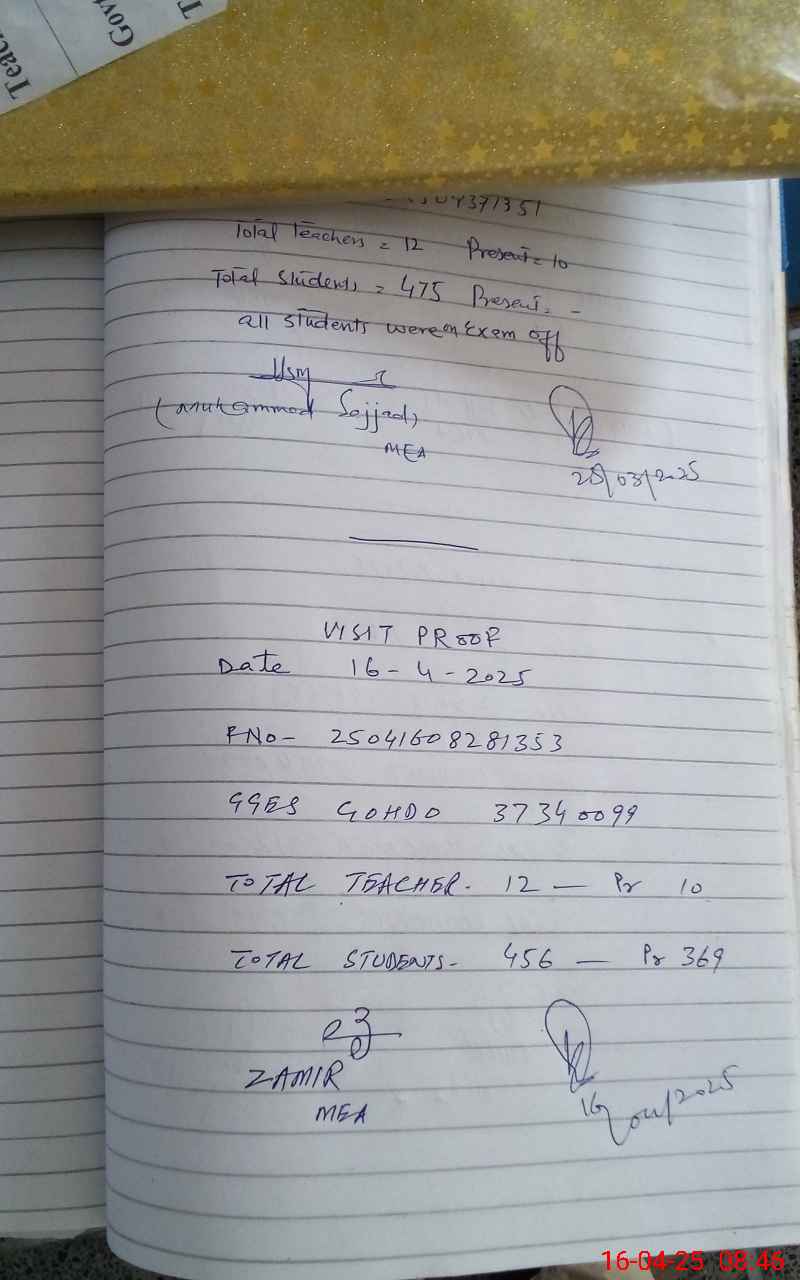 Teac
Govt
T
04371351
Total Teachers = 12 Present = 10
Total Students = 475 Present = -
all students were on Exam off
(Muhammad Sajjad)
MEA
28/03/2025
VISIT PROOF
Date 16-4-2025
RNo- 25041608281353
GGES GOHDO 37340099
TOTAL TEACHER- 12 — Pr 10
TOTAL STUDENTS- 456 — Pr 369
ZAMIR
MEA
16/04/2025
16-04-25 08:46